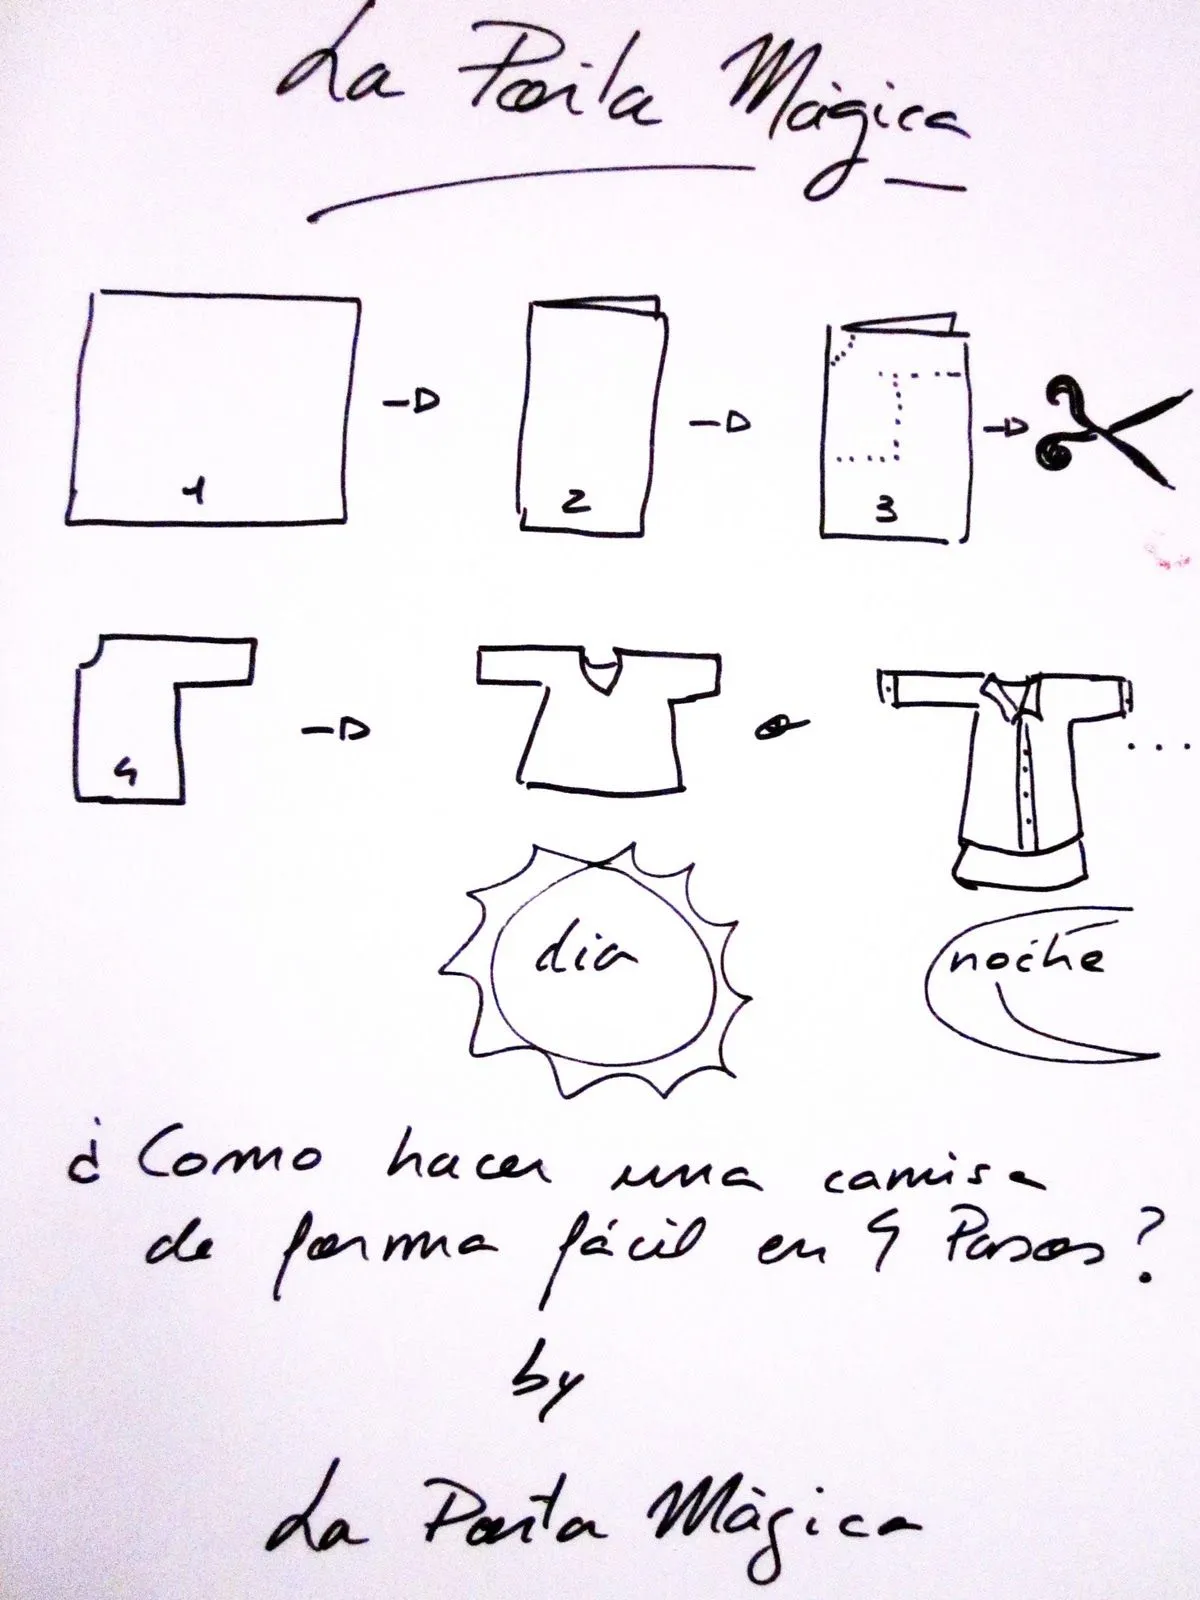 La Porta Màgica
1
2
3
4
o
...
dia
noche
¿Como hacer una camisa
de forma fácil en 4 Pasos?
by
La Porta Màgica